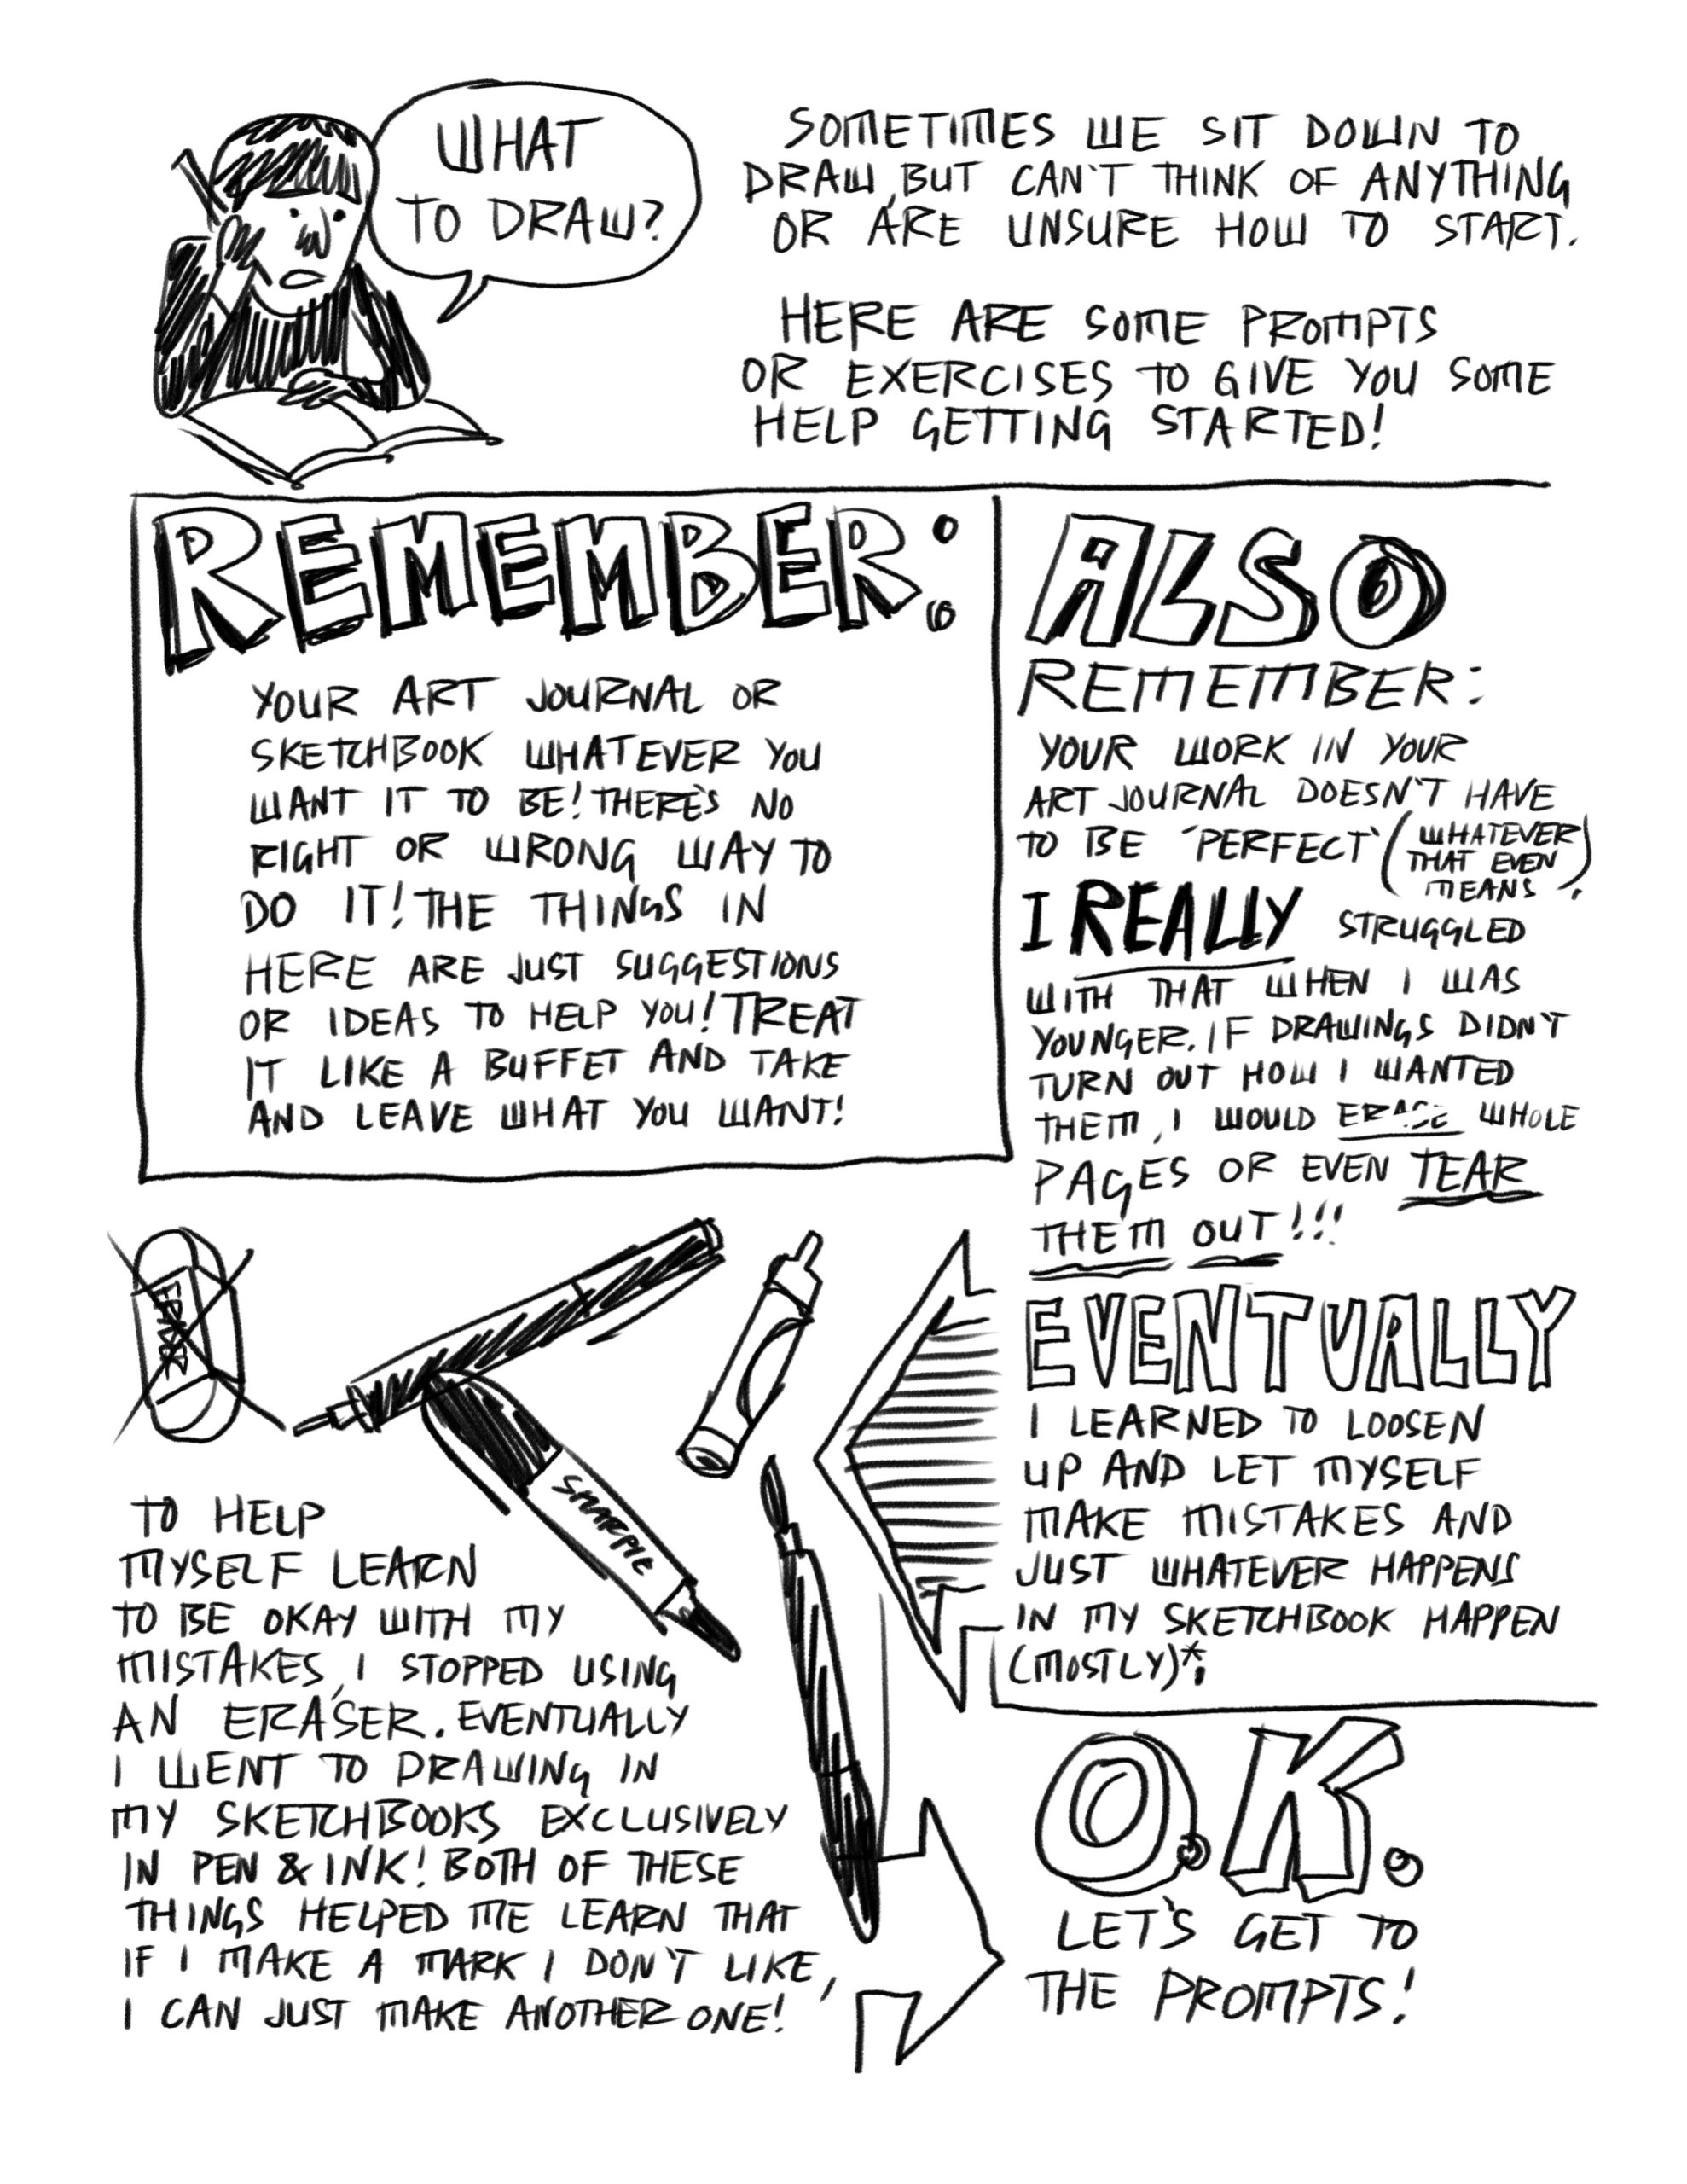 WHAT
TO DRAW?
SOMETIMES WE SIT DOWN TO
DRAW, BUT CAN'T THINK OF ANYTHING
OR ARE UNSURE HOW TO START.
HERE ARE SOME PROMPTS
OR EXERCISES TO GIVE YOU SOME
HELP GETTING STARTED!
REMEMBER:
YOUR ART JOURNAL OR
SKETCHBOOK WHATEVER YOU
WANT IT TO BE! THERE'S NO
RIGHT OR WRONG WAY TO
DO IT! THE THINGS IN
HERE ARE JUST SUGGESTIONS
OR IDEAS TO HELP YOU! TREAT
IT LIKE A BUFFET AND TAKE
AND LEAVE WHAT YOU WANT!
ALSO
REMEMBER:
YOUR WORK IN YOUR
ART JOURNAL DOESN'T HAVE
TO BE 'PERFECT' (WHATEVER
THAT EVEN
MEANS).
I REALLY STRUGGLED
WITH THAT WHEN I WAS
YOUNGER. IF DRAWINGS DIDN'T
TURN OUT HOW I WANTED
THEM, I WOULD ERASE WHOLE
PAGES OR EVEN TEAR
THEM OUT!!!
EVENTUALLY
I LEARNED TO LOOSEN
UP AND LET MYSELF
MAKE MISTAKES AND
JUST WHATEVER HAPPENS
IN MY SKETCHBOOK HAPPEN
(MOSTLY)*.
ERASER
SHARPIE
TO HELP
MYSELF LEARN
TO BE OKAY WITH MY
MISTAKES, I STOPPED USING
AN ERASER. EVENTUALLY
I WENT TO DRAWING IN
MY SKETCHBOOKS EXCLUSIVELY
IN PEN & INK! BOTH OF THESE
THINGS HELPED ME LEARN THAT
IF I MAKE A MARK I DON'T LIKE,
I CAN JUST MAKE ANOTHER ONE!
O.K.
LET'S GET TO
THE PROMPTS!